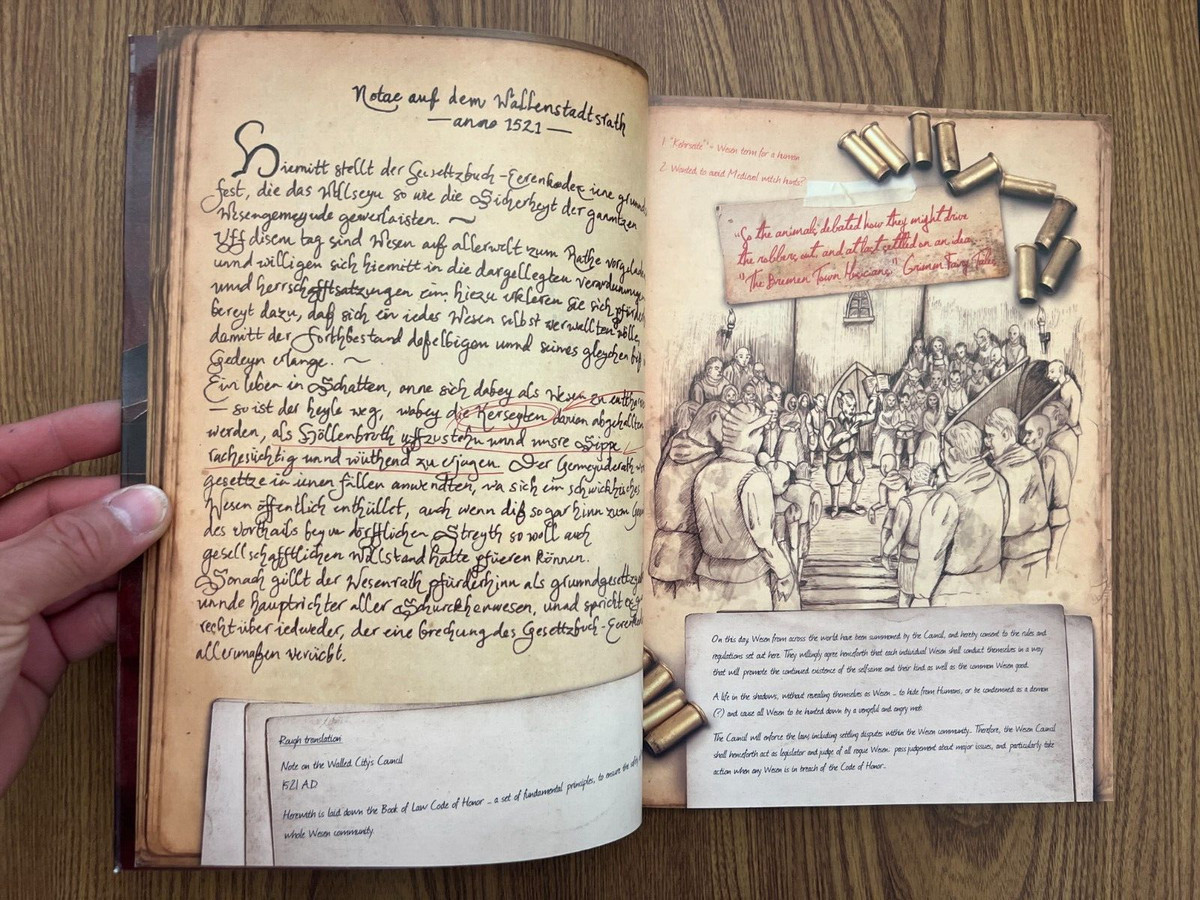 Notae auf dem Wallenstadtsrath
— anno 1521 —
Hiemitt stellt der Gesettzbuch - Eerenkodex iene
fest, die das Wollseyn so wie die Sicherheyt der ganntzen
Wesengemeynde gewerlaisten. ~
Uff disem tag sind Wesen auf allerwelt zum Rathe
unnd willigen sich hiemitt in die dargellegten
unnd herrschafftsatzungen ein. hiezu erkleren Sie sich
bereyt dazu, daß sich ein iedes Wesen selbst verwallten wölle,
damitt der Forthbestand deßelbigen unnd seines gleychen
Gedeyn erlange. ~
Ein leben in Schatten, onne sich dabey als Wesen zu
— so ist der heyle weg, wobey die Kerseyten daran
werden, als Höllenbruth uffzustehn unnd unsre Sippe
rachesüchtig unnd wüthend zu erjagen. Der Gemeynderath
gesettze in ienen fällen anwendten, wa sich ein
Wesen öffentlich enthüllet, auch wenn diß sogar hinn zum
des vorthails beyn dörfflichen Streyth so woll auch
gesellschafftlichen Wollstand hätte pfüeren können.
Sonach gillt der Wesenrath pfürderhinn als
unnde hauptrichter aller Schurckhenwesen, unnd spricht
recht über iedweder, der eine brechung des Gesettzbuch -
allermaßen verüebt.
Rough translation
Note on the Walled City's Council
1521 A.D
Herewith is laid down the Book of Law Code of Honor - a set of fundamental principles, to ensure the
whole Wesen community.
1 "Kehrseite" - Wesen term for a human
2. Wanted to avoid Medieval witch hunts?
"So the animals debated how they might drive
the robbers out, and at last settled on an idea.
"The Bremen Town Musicians" Grimm Fairy Tales
On this day Wesen from across the world have been summoned by the Council, and hereby consent to the rules and
regulations set out here. They willingly agree henceforth that each individual Wesen shall conduct themselves in a way
that will promote the continued existence of the selfsame and their kind as well as the common Wesen good.
A life in the shadows, without revealing themselves as Wesen - to hide from Humans, or be condemned as a demon
(?) and cause all Wesen to be hunted down by a vengeful and angry mob.
The Council will enforce the laws including settling disputes within the Wesen community. Therefore, the Wesen Council
shall henceforth act as legislator and judge of all rogue Wesen. pass judgement about major issues, and particularly take
action when any Wesen is in breach of the Code of Honor.